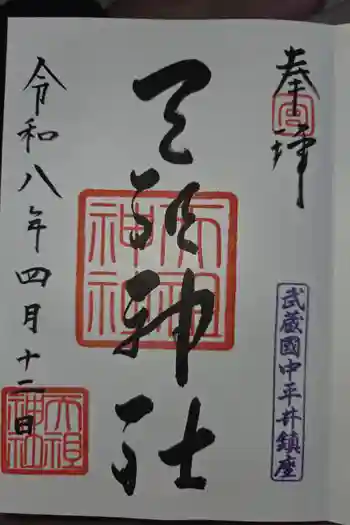 奉拝
武蔵國中平井鎮座
天祖神社
天祖神社
令和八年四月十二日
天祖神社